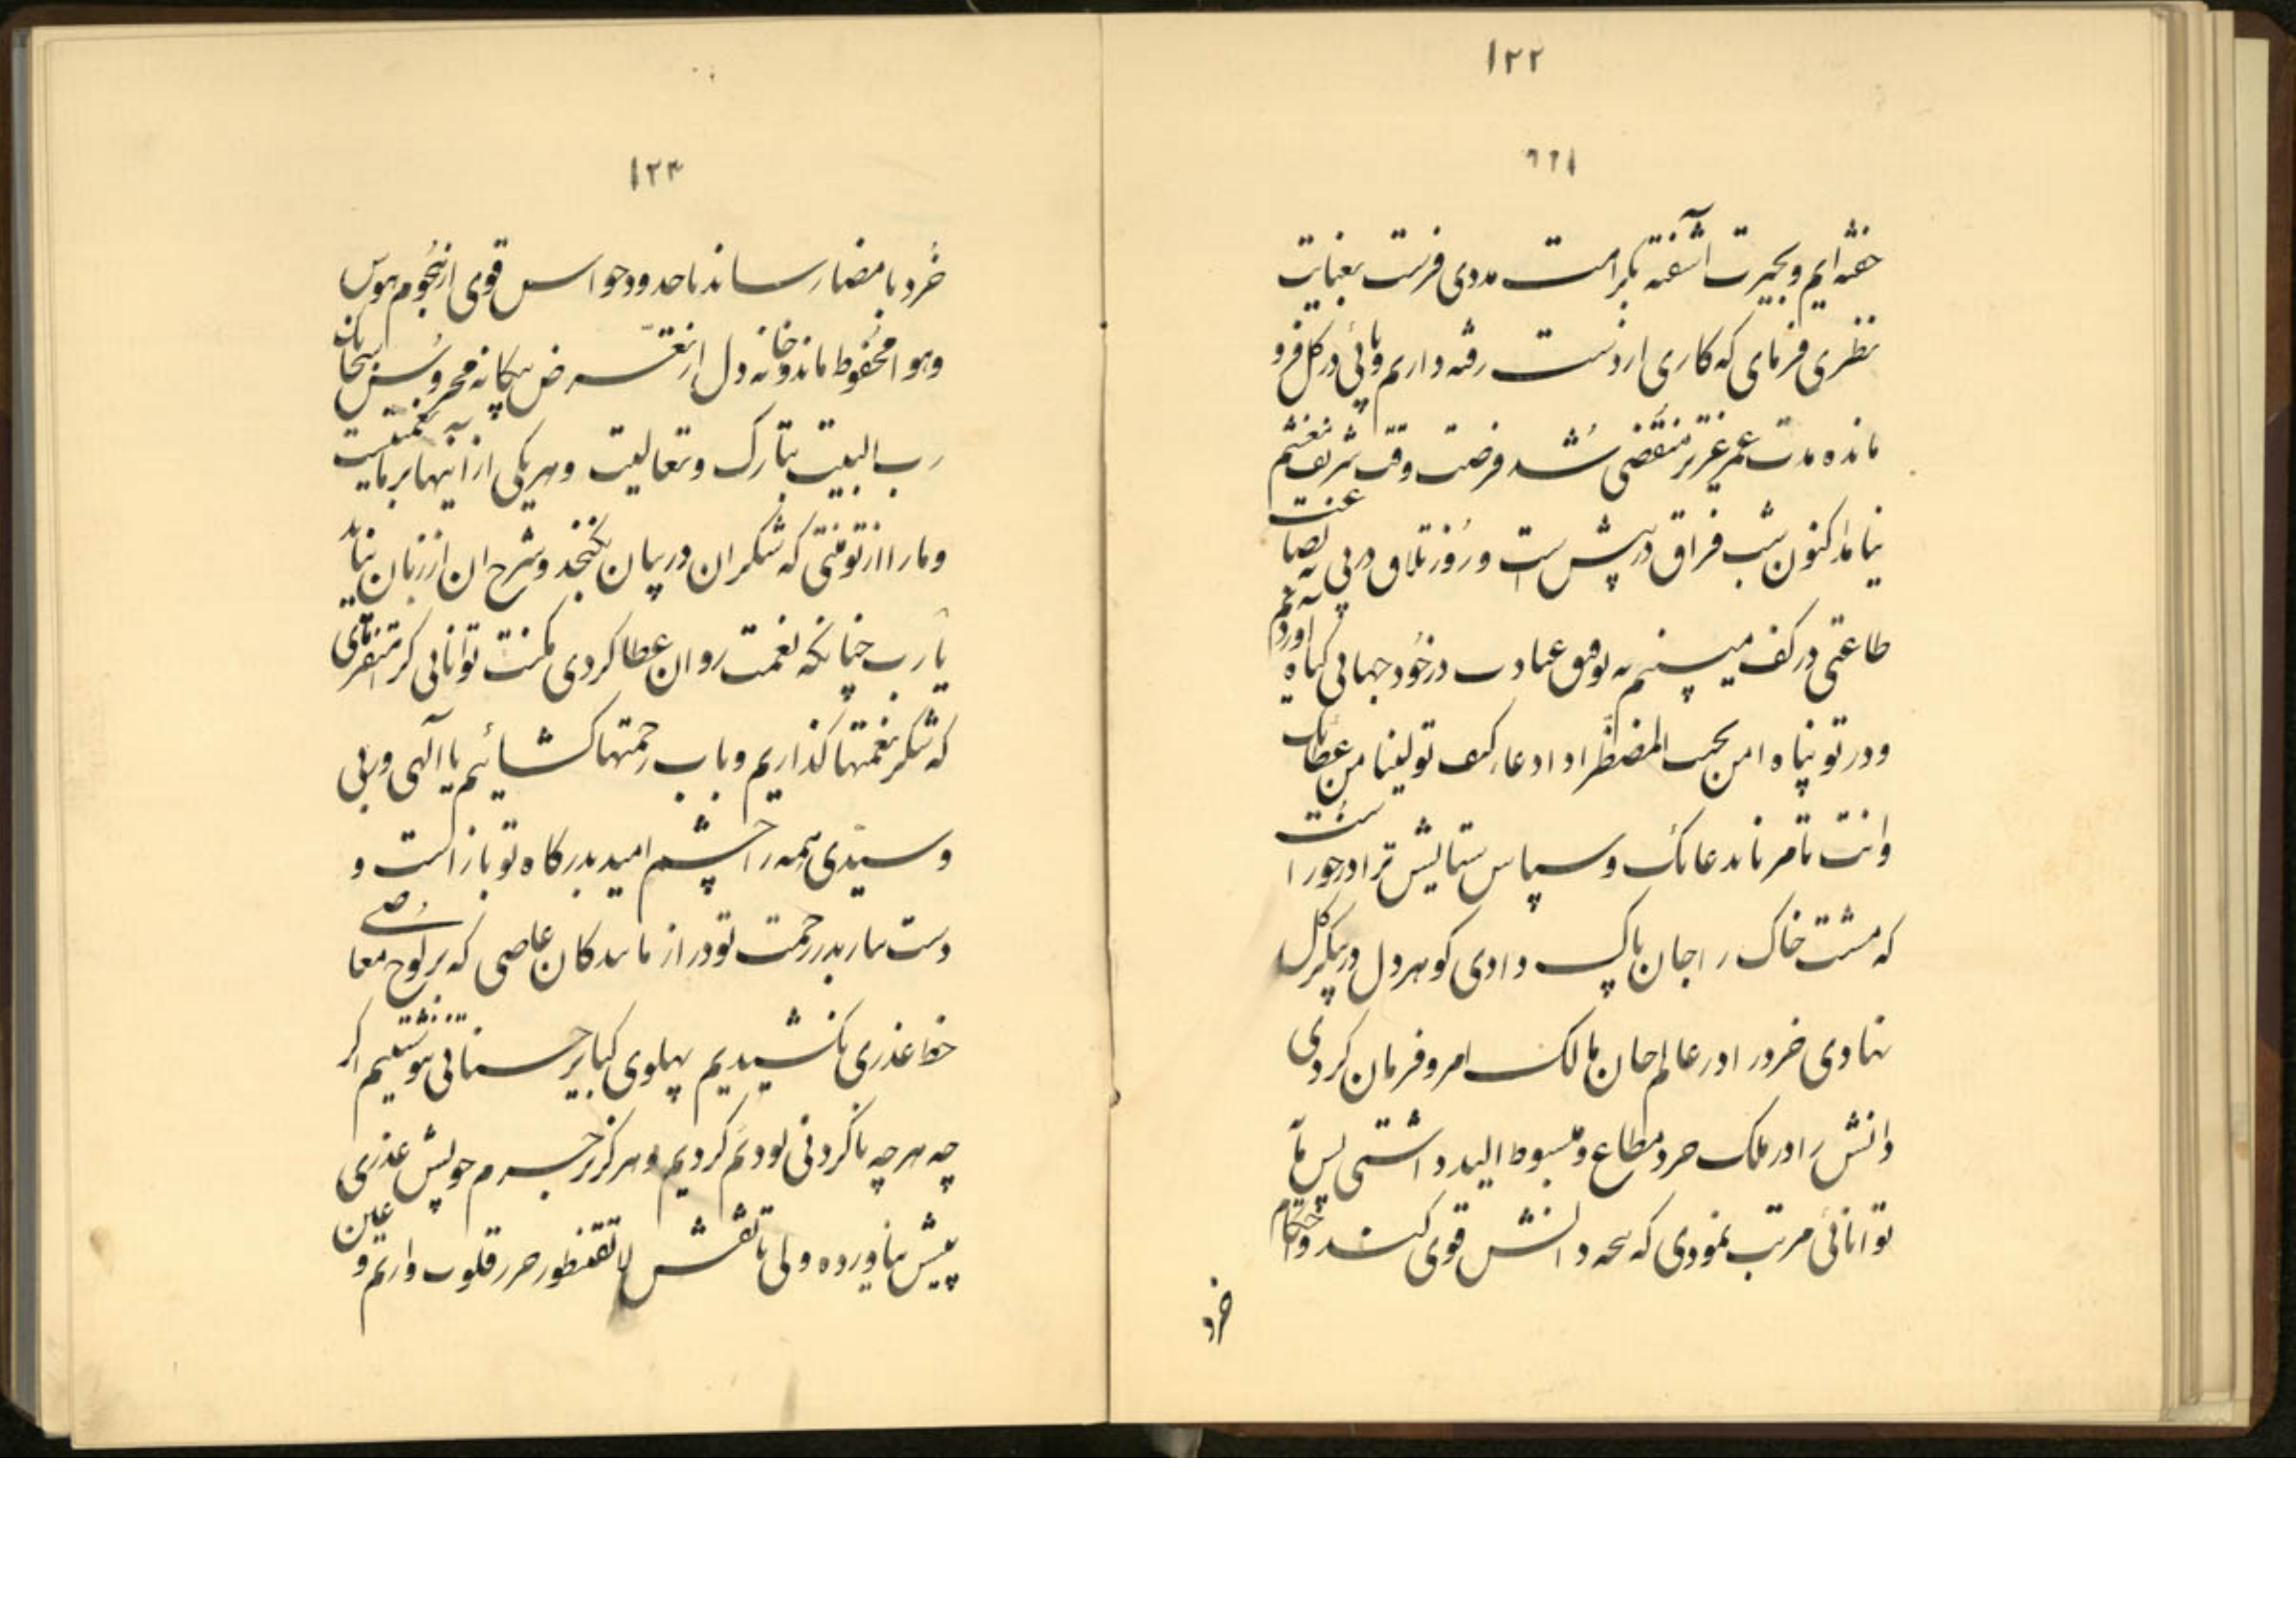 ۱۲۲
خفته ایم و بحیرت آشفته بکرامت مددی فرست بعنایت
نظری فرمای که کاری از دست رفته داریم و پائی در گل فرو
مانده مدت عمر عزیز منقضی شد فرصت وقت شریف مغتنم
نیامد اکنون شب فراق در پیش است و روز تلاق در پی نه بضاعت
طاعتی در کف میبینم نه توفیق عبادت در خود جهانی گناه آوردیم
و در تو پناه امن یجیب المضطر اذا دعاک کیف تولینا من عطائک
وانت تامرنا بدعائک و سپاس ستایش ترا در خور است
که مشت خاک را جان پاک دادی گوهر دل در پیکر گل
نهادی خرد را در عالم جان مالک امر و فرمان کردی
دانش را در ملک خرد مطاع و مبسوط الید داشتی پس
توانائی مرتب نمودی که دانش قوی کند و احکام
خرد
۱۲۳
خرد بامضا رساند تا حدود حواس قوی از هجوم هوس
و هوا محفوظ ماند و خانه دل از تعرض بیگانه محروس سبحانک
رب البیت تبارکت و تعالیت و هر یکی از اینها بر ما نعمتیست
و ما را از تو منتی که شکر ان در بیان نگنجد و شرح ان از زبان نیاید
یارب چنانکه نعمت روان عطا کردی مکنت توانائی کرامت فرمای
که شکر نعمتها گذاریم و باب رحمتها گشائیم یا الهی و ربی
و سیدی همه را چشم امید بدرگاه تو باز است و
دست نیاز بدر رحمت تو دراز ما بندگان عاصی که بر لوح معاصی
خط عذری نکشیدیم پهلوی کبایر حسناتی ننوشتیم اگر
چه هر چه ناکردنی بود کردیم و هرگز بر جرم خویش عذری
پیش نیاورده ولی نقش لا تقنطو در قلوب داریم و عین